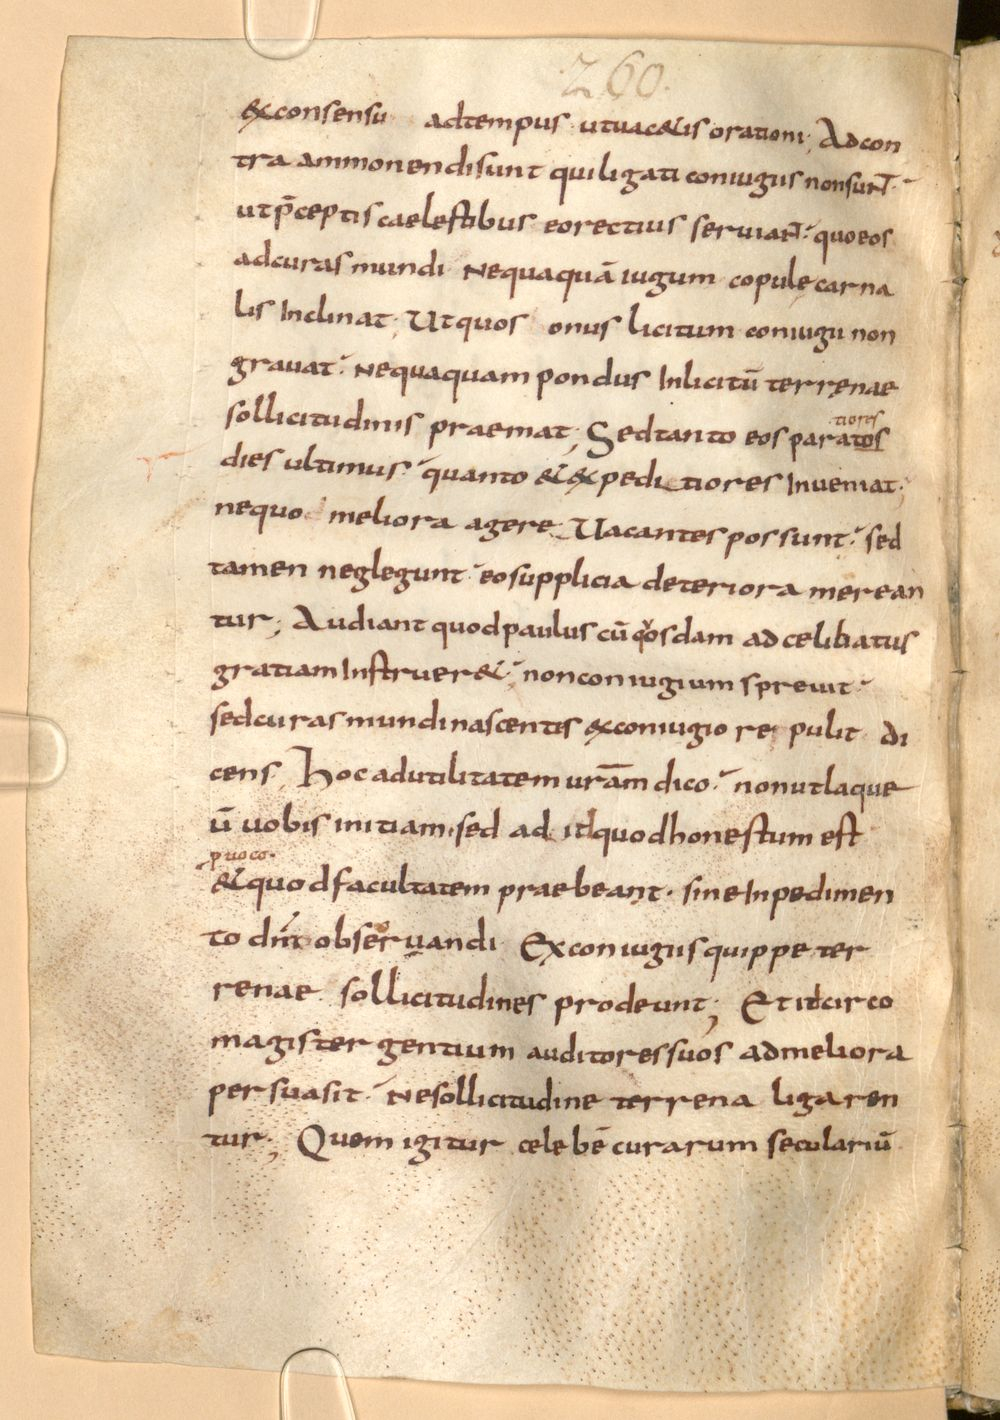 260.
&xconsensu adtempus utuac&is orationi; Adcon
tra ammonendisunt quiligati coniugiis nonsunt.
utp̄ceptis caelestibus eorectius seruiant. quoeos
adcuras mundi Nequaquā iugum copulę carna
lis Inclinat; Utquos onus licitum coniugii non
grauat. Nequaquam pondus Inlicitū terrenae
sollicitudinis praemat; Sedtanto eos paratos
tiores
dies ultimus quanto & &xpeditiores Inueniat;
nequo meliora agere Uacantes possunt. sed
tamen neglegunt eosupplicia deteriora merean
tur; Audiant quodpaulus cū qosdam adcelibatus
gratiam Instruer&; nonconiugium spreuit.
sedcuras mundi nascentis exconiugio repulit di
cens; Hoc adutilitatem urām dico. nonutlaque
ū uobis initiam. sed ad id quodhonestum est
puoco.
&quod facultatem praebeant. sine Inpedimen
to dn̄i obseruandi Exconiugiis quippe ter
renae sollicitudines prodeunt; Et idcirco
magister gentium auditores suos admeliora
persuasit. Nesollicitudine terrena ligaren
tur; Quem igitur celebē curarum seculariū